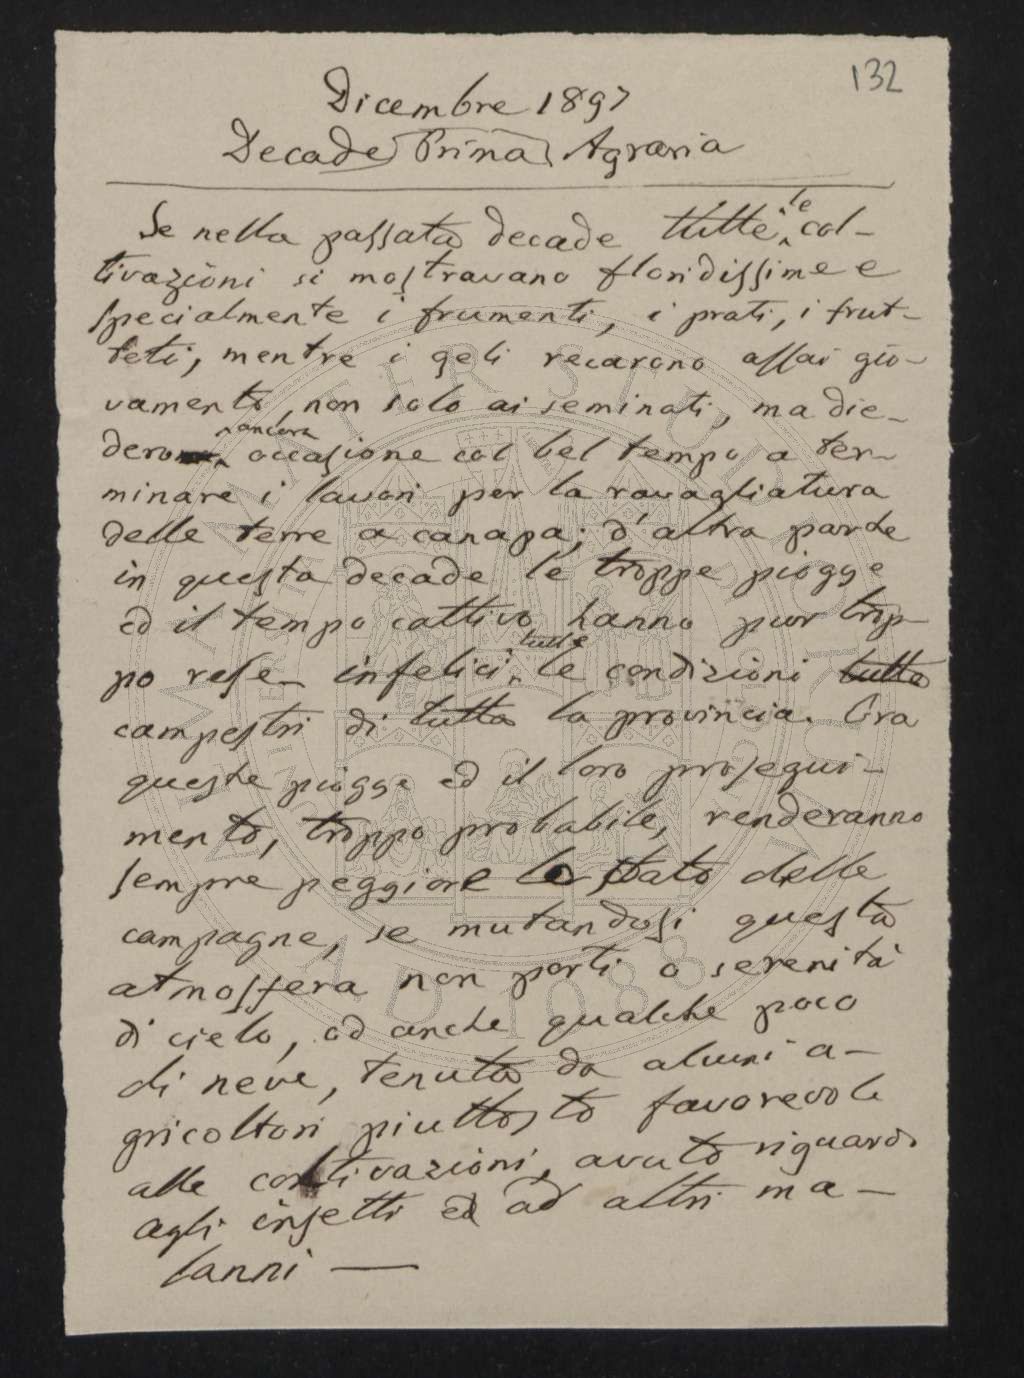 132
Dicembre 1897
Decade Prima Agraria
Se nella passata decade tutte le col-
tivazioni si mostravano floridissime e
specialmente i frumenti, i prati, i frut-
teti, mentre i geli recarono assai gio-
vamento, non solo ai seminati, ma die-
dero ancora occasione col bel tempo a ter-
minare i lavori per la ravagliatura
delle terre a canapa; d'altra parte
in questa decade le troppe piogge
ed il tempo cattivo hanno pur trop-
po rese infelici tutte le condizioni tutte
campestri di tutta la provincia. Ora
queste piogge ed il loro prosegui-
mento, troppo probabile, renderanno
sempre peggiore lo stato delle
campagne, se mutandosi questa
atmosfera non porti o serenità
di cielo, od anche qualche poco
di neve, tenuta da alcuni a-
gricoltori piuttosto favorevole
alle coltivazioni, avuto riguardo
agli insetti ed ad altri ma-
lanni —
ALMA MATER STUDIORUM
A.D. 1088